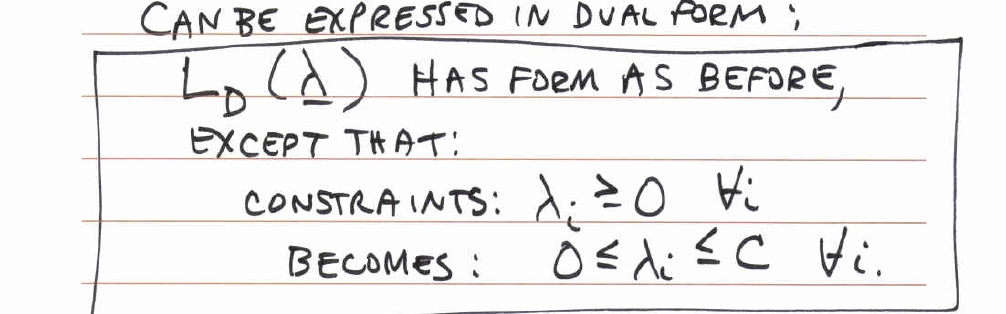 CAN BE EXPRESSED IN DUAL FORM;
L_D (λ) HAS FORM AS BEFORE,
EXCEPT THAT:
CONSTRAINTS: λ_i ≥ 0 ∀i
BECOMES: 0 ≤ λ_i ≤ C ∀i.